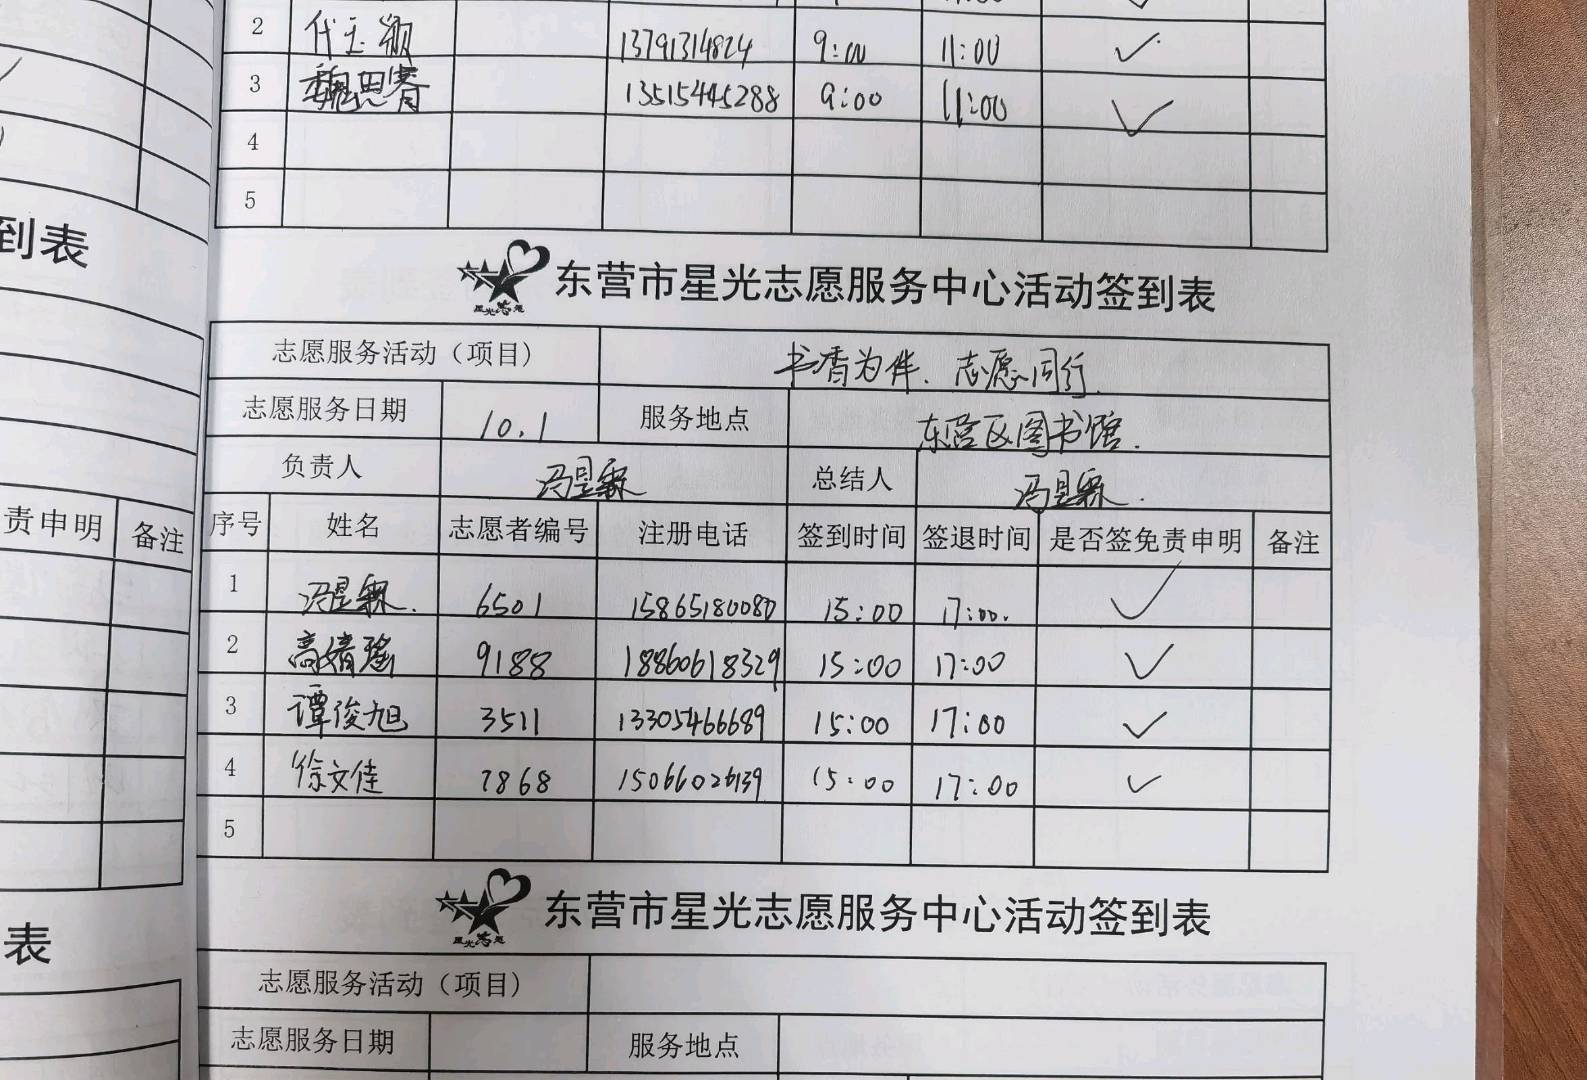 2 代玉颖 13791314824 9:00 11:00 ✓
3 魏思睿 13515445288 9:00 11:00 ✓
4
5
到表
责申明 备注
表
星光志愿
东营市星光志愿服务中心活动签到表
志愿服务活动（项目） 书香为伴、志愿同行
志愿服务日期 10.1 服务地点 东营区图书馆.
负责人 冯昱霖 总结人 冯昱霖.
序号 姓名 志愿者编号 注册电话 签到时间 签退时间 是否签免责申明 备注
1 冯昱霖. 6501 15865180080 15:00 17:00. ✓
2 高婧瑶 9188 18860618329 15:00 17:00 ✓
3 谭俊旭 3511 13305466689 15:00 17:00 ✓
4 徐文佳 7868 15066026139 15:00 17:00 ✓
5
星光志愿
东营市星光志愿服务中心活动签到表
志愿服务活动（项目）
志愿服务日期 服务地点